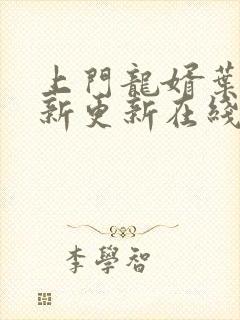 上門龍婿葉
新更新在綫
李學智